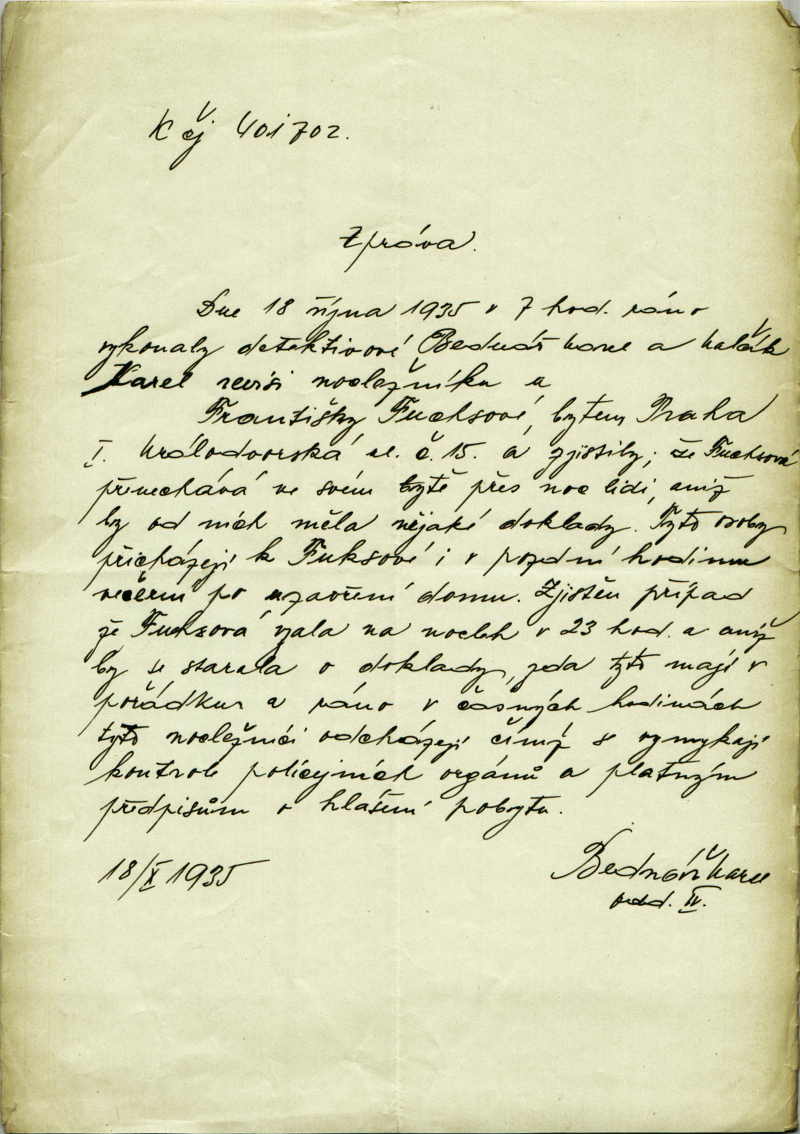 K čj 401702.
Zpráva.
Dne 18 října 1935 v 7 hod. ráno
vykonaly detektivové Bednář Karel a
Karel revisi nocležníku u
Františky Fuchsové, bytem Praha
I. Králodvorská ul. č. 15. a zjistily, že Fuchsová
přenechává ve svém bytě přes noc lidi, aniž
by od nich měla nějaké doklady. Tyto osoby
přicházejí k Fuksové i v pozdní hodinu
večerní po uzavření domu. Zjištěn případ
že Fuksová vzala na nocleh v 23 hod. a aniž
by se starala o doklady, zda tyto mají v
pořádku a ráno v časných hodinách
tyto nocležníci odcházejí čímž se vymykají
kontrole policejních orgánů a platným
předpisům o hlášení pobytu.
18/X 1935
Bednář Karel
odd. IV.